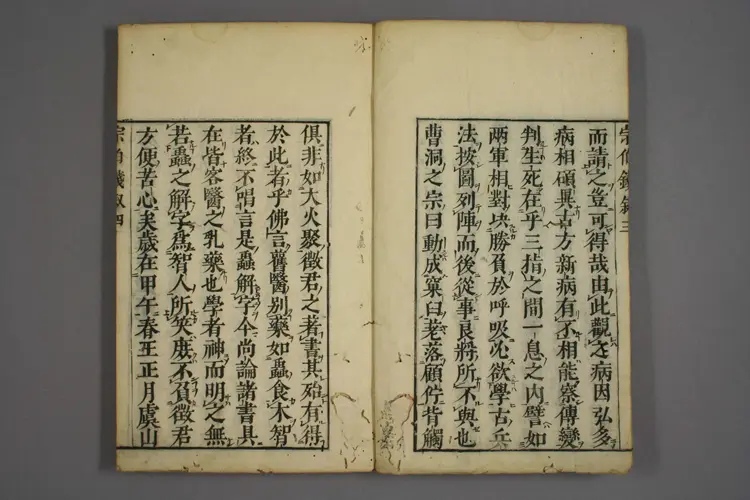 宗伯錢敘三
而請之豈可得哉由此觀之病因弘多
病相頗異古方新病有不相能察傳變
判生死在乎三指之間一息之內譬如
兩軍相對决勝負於呼吸必欲學古兵
法按圖列陣而後從事良將所不與也
曹洞之宗曰動成窠臼差落顧佇背觸
俱非如大火聚徵君之著書其殆有得
於此者乎佛言舊醫別藥如蟲食木智
者終不唱言是蟲解字今尚論諸書具
在皆客醫之乳藥也學者神而明之無
若蟲之解字為智人所笑庶不負徵君
方便苦心矣歲在甲午春王正月虞山
宗伯錢敘四